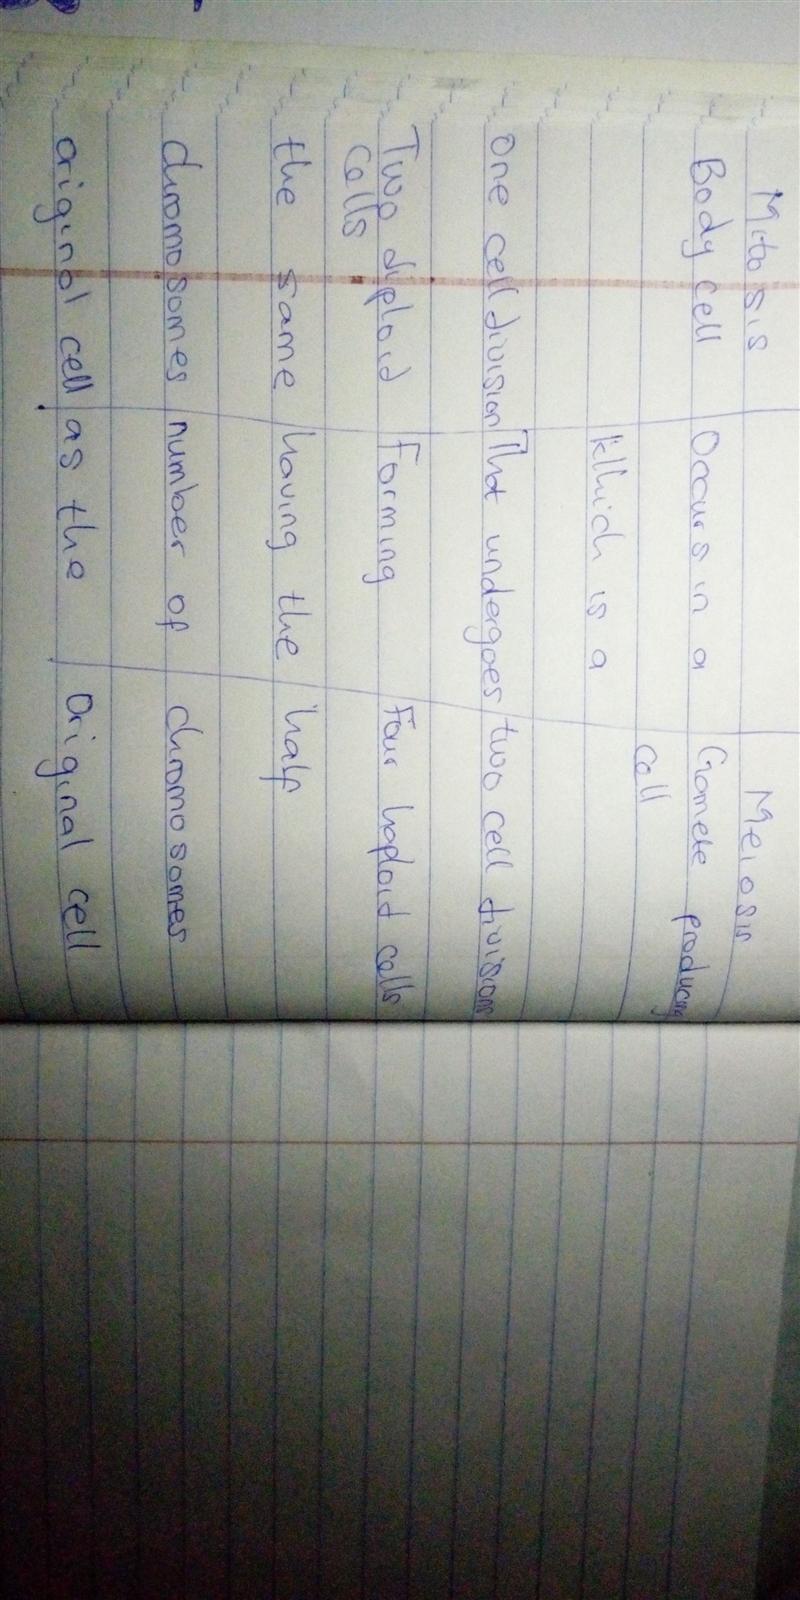 Mitosis Meiosis
Body cell Occurs in a Gamete producing
cell
Which is a
one cell division That undergoes two cell division
Two diploid Forming Four haploid cells
cells
the same having the half
chromosomes number of chromosomes
original cell as the original cell